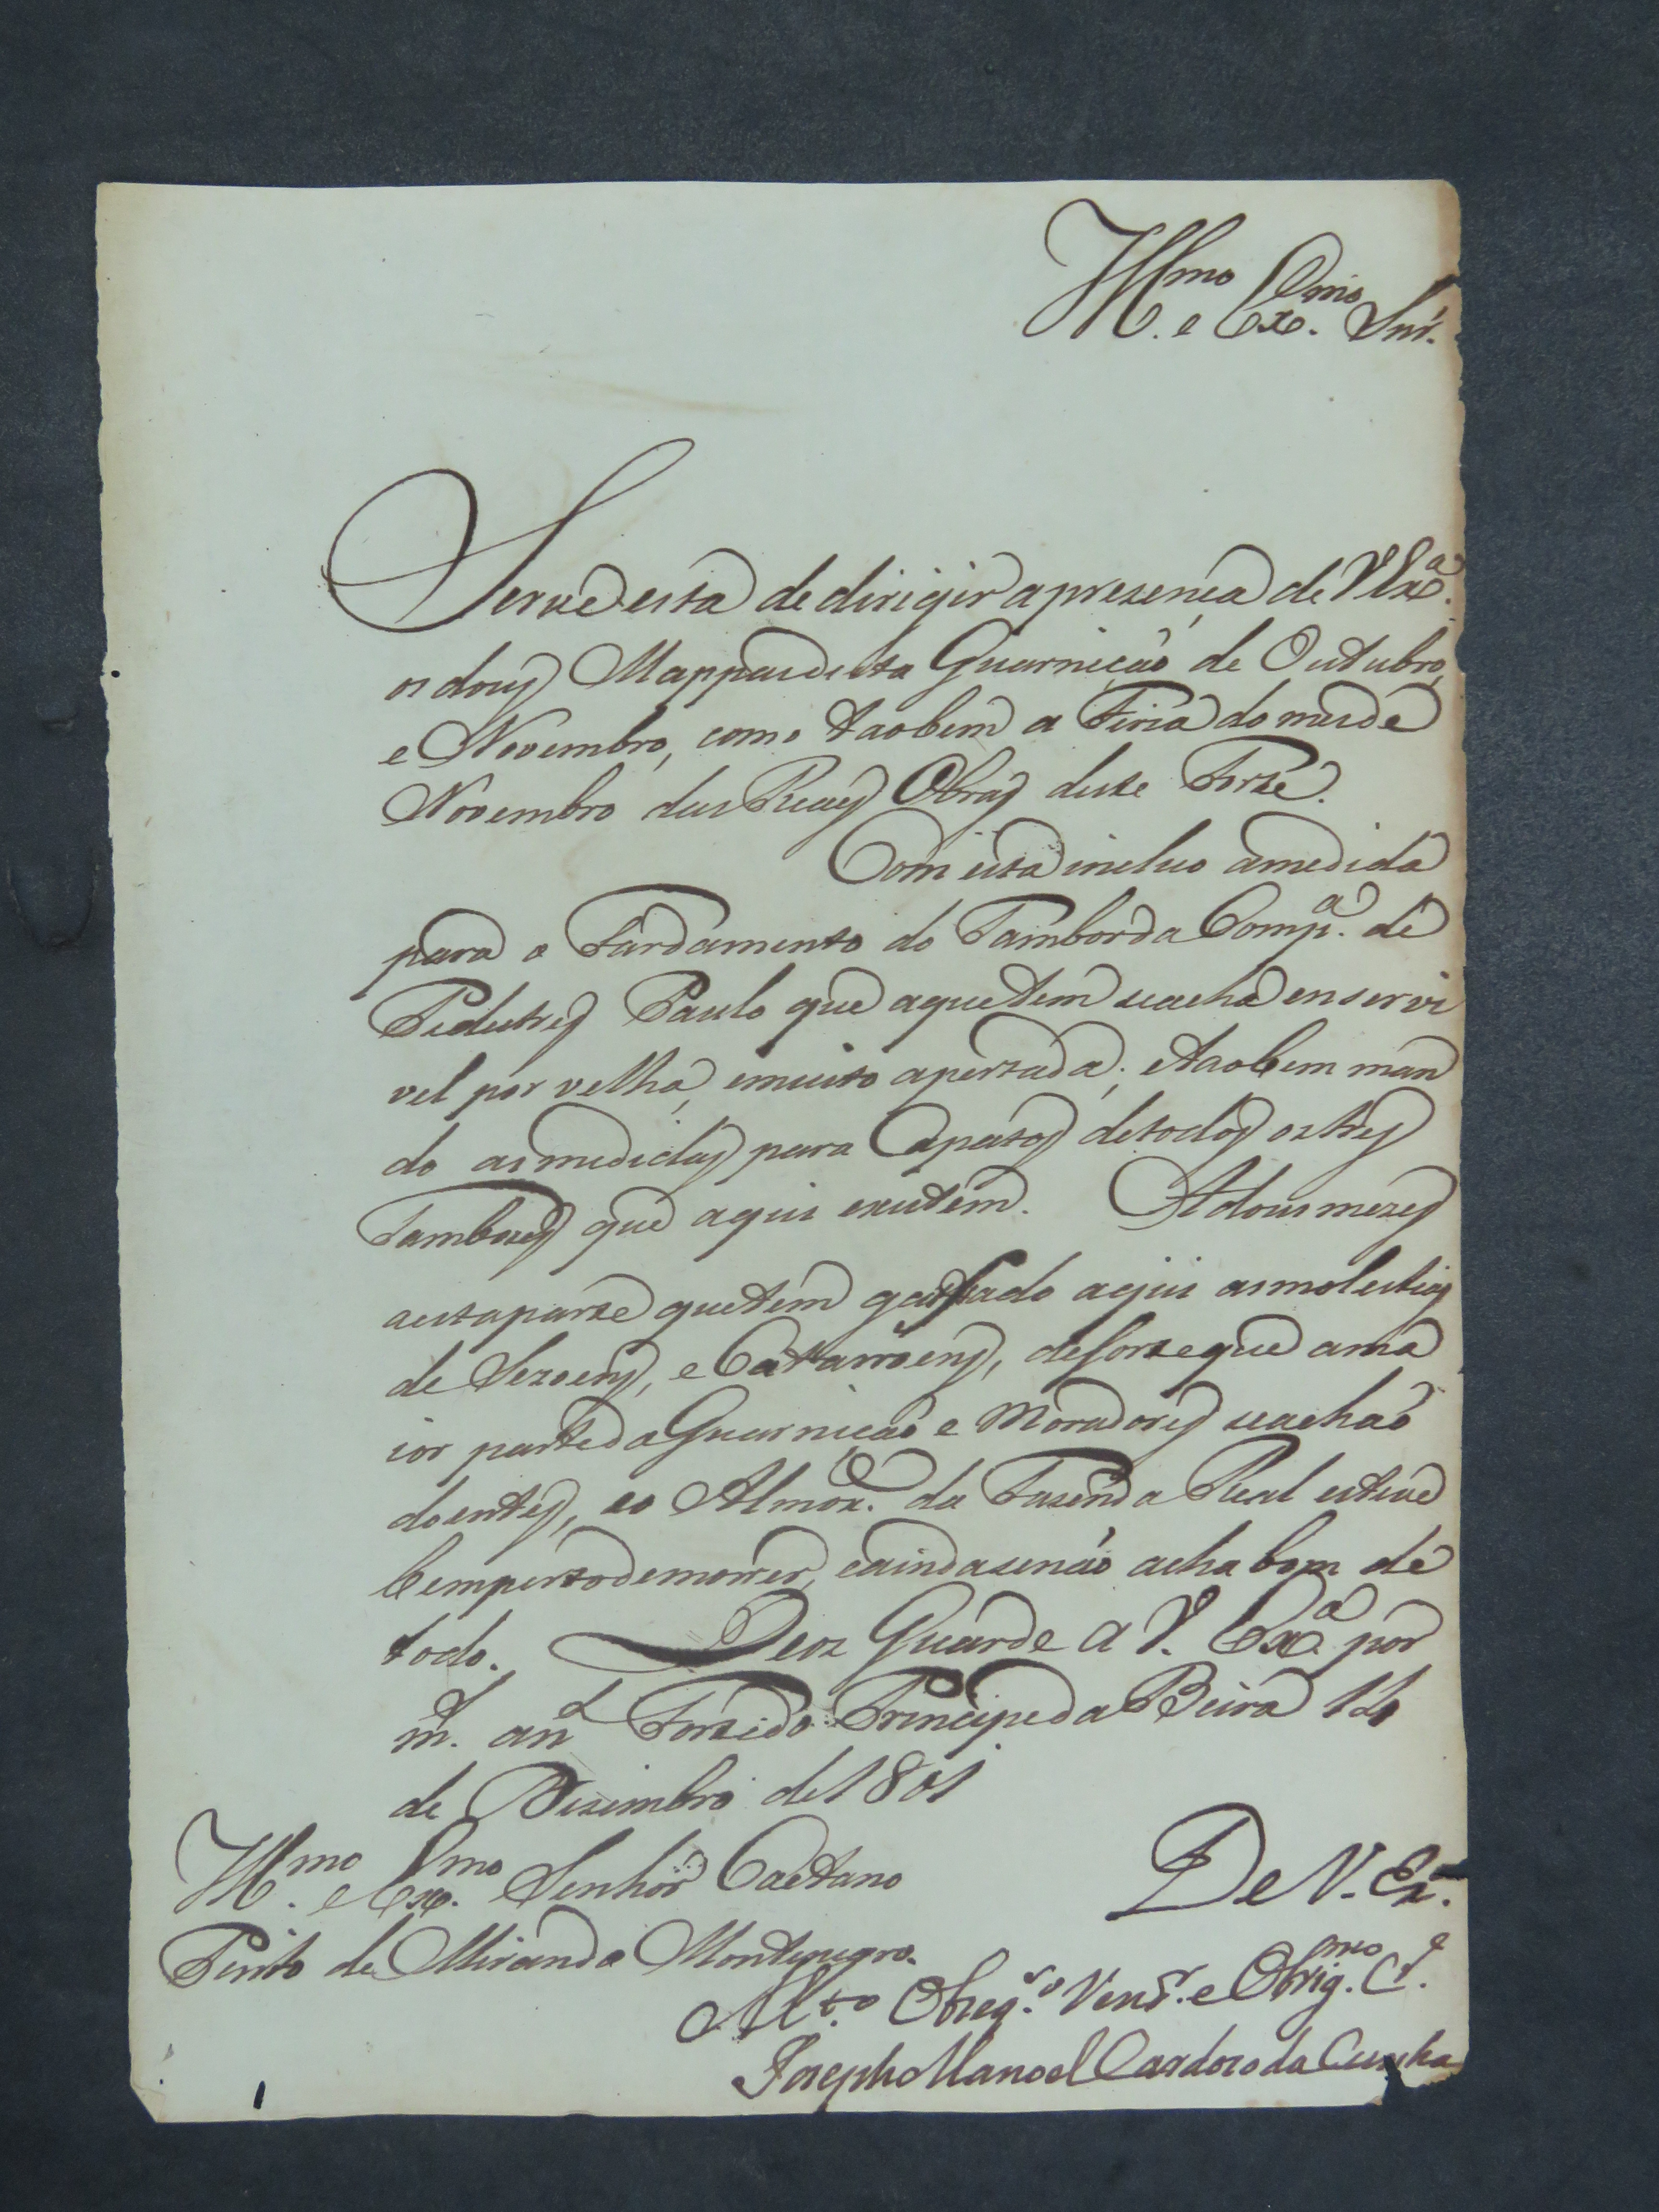 Ill.mo e Ex.mo Snr.
Serve esta de dirigir a presença de V Ex.a
os dous Mappas desta Guarnição de Outubro,
e Novembro, como taobem a Feria do mes de
Novembro das Reaes Obras deste Forte.
Com esta incluo a medida
para o Fardamento do Tambor da Comp.a de
Pedestres Paulo que a que tem se acha enservi
vel por velha, e muito apertada; e taobem man
do as medidas para Çapatos de todos os tres
Tambores que aqui existem. A dous mezes
a esta parte que tem grassado aqui as molestias
de Sezoens, e Catarroens, de sorte que a ma
ior parte da Guarnição e Moradores se achaõ
doentes, e o Almox.e da Fazenda Real esteve
bem perto de morrer, e ainda se não acha bom de
todo. Deoz Guarde a V. Ex.a por
m.s an.s Forte do Principe da Beira 14
de Dezembro de 1801
Ill.mo e Ex.mo Senhor Caetano
Pinto de Miranda Montenegro.
De V. Ex.
M.to Obzeq.zo Vener. e Obrig.mo C.e
Joseph Manoel Cardozo da Cunha